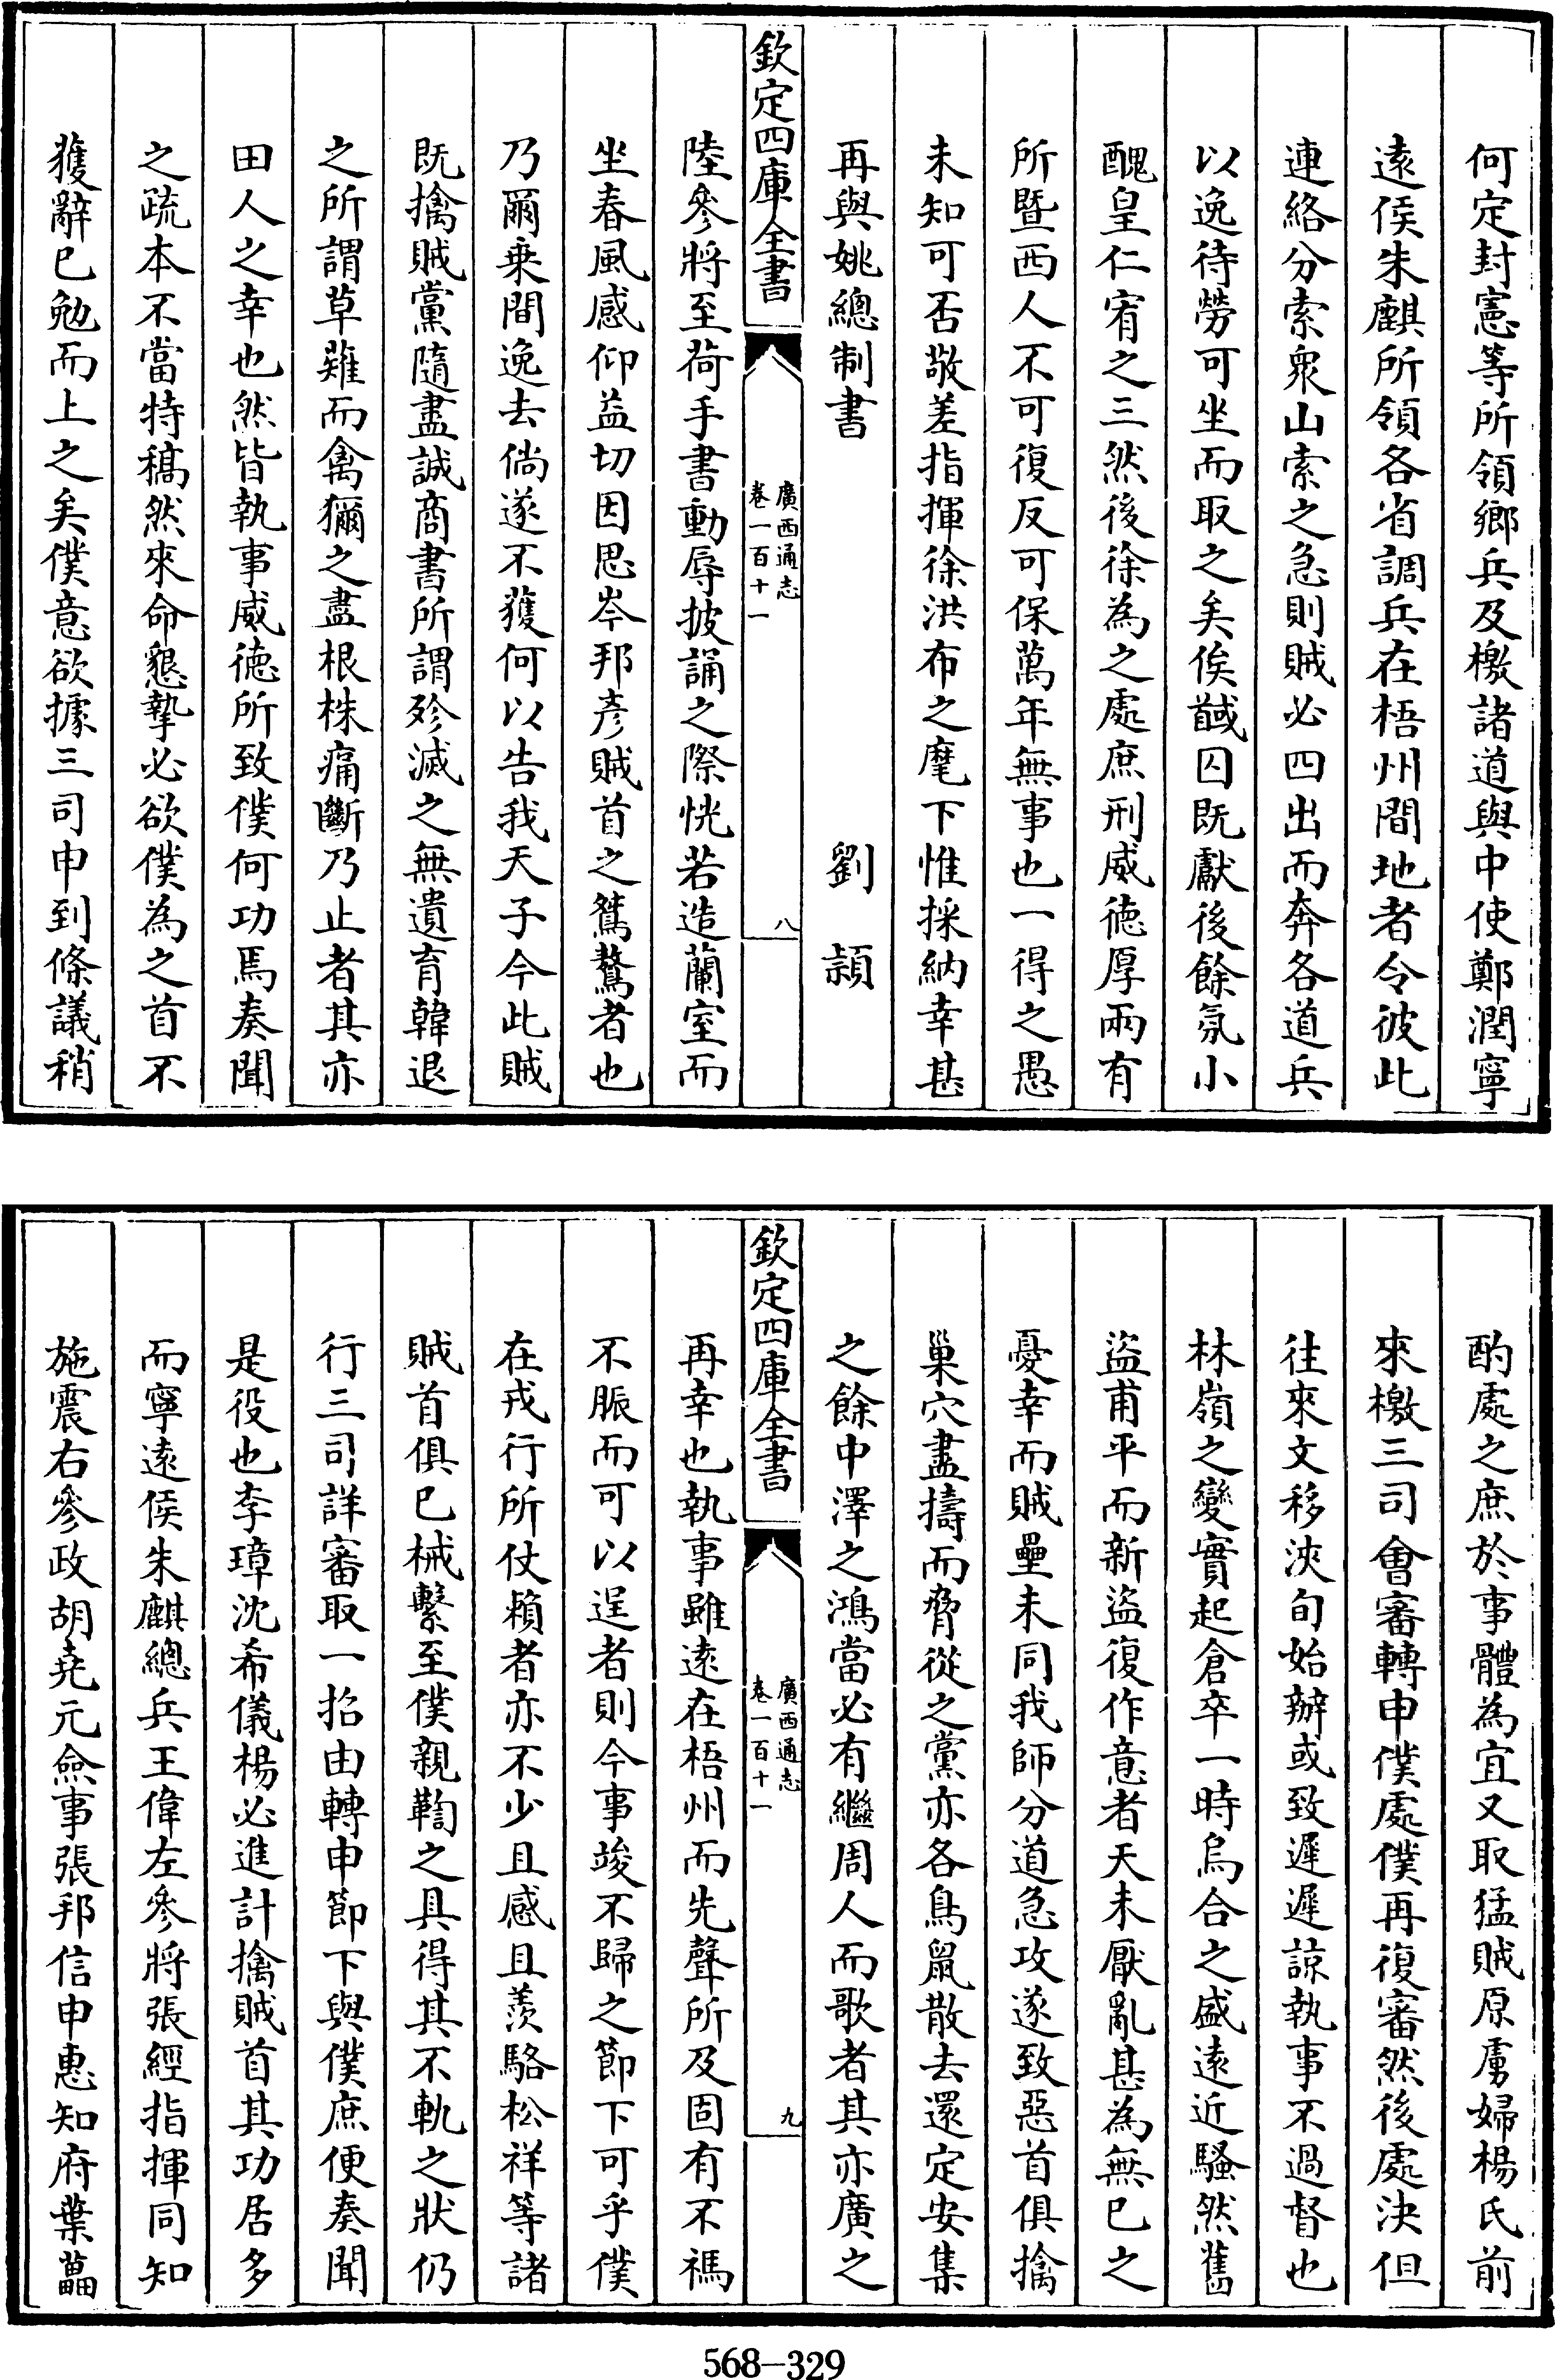 何定封憲等所領鄉兵及檄諸道與中使鄭潤寧
遠侯朱麒所領各省調兵在梧州間地者令彼此
連絡分索衆山索之急則賊必四出而奔各道兵
以逸待勞可坐而取之矣俟馘囚既獻後餘氛小
醜皇仁宥之三然後徐為之處庶刑威德厚兩有
所暨西人不可復反可保萬年無事也一得之愚
未知可否敬差指揮徐洪布之麾下惟採納幸甚
再與姚總制書　劉潁
欽定四庫全書
廣西通志
卷一百十一
八
陸參將至荷手書動辱披誦之際恍若造蘭室而
坐春風感仰益切因思岑邦彥賊首之鴛驁者也
乃爾乗間逸去倘遂不獲何以告我天子今此賊
既擒賊黨隨盡誠商書所謂殄滅之無遺育韓退
之所謂草薙而禽獮之盡根株痛斷乃止者其亦
田人之幸也然皆執事威德所致僕何功焉奏聞
之疏本不當特稿然來命懇摯必欲僕為之首不
獲辭已勉而上之矣僕意欲據三司申到條議稍
酌處之庶於事體為宜又取猛賊原虜婦楊氏前
來檄三司會審轉申僕處僕再復審然後處決但
往來文移浹旬始辦或致遲遲諒執事不過督也
林嶺之變實起倉卒一時烏合之盛遠近騷然舊
盜甫平而新盜復作意者天未厭亂甚為無已之
憂幸而賊壘未同我師分道急攻遂致惡首俱擒
巢穴盡擣而脅從之黨亦各鳥鼠散去還定安集
之餘中澤之鴻當必有繼周人而歌者其亦廣之
欽定四庫全書
廣西通志
卷一百十一
九
再幸也執事雖遠在梧州而先聲所及固有不禡
不脤而可以逞者則今事竣不歸之節下可乎僕
在戎行所仗賴者亦不少且感且羨駱松祥等諸
賊首俱已械繫至僕親鞫之具得其不軌之狀仍
行三司詳審取一招由轉申節下與僕庶便奏聞
是役也李璋沈希儀楊必進計擒賊首其功居多
而寧遠侯朱麒總兵王偉左參將張經指揮同知
施震右參政胡堯元僉事張邦信申惠知府葉藟
568-329